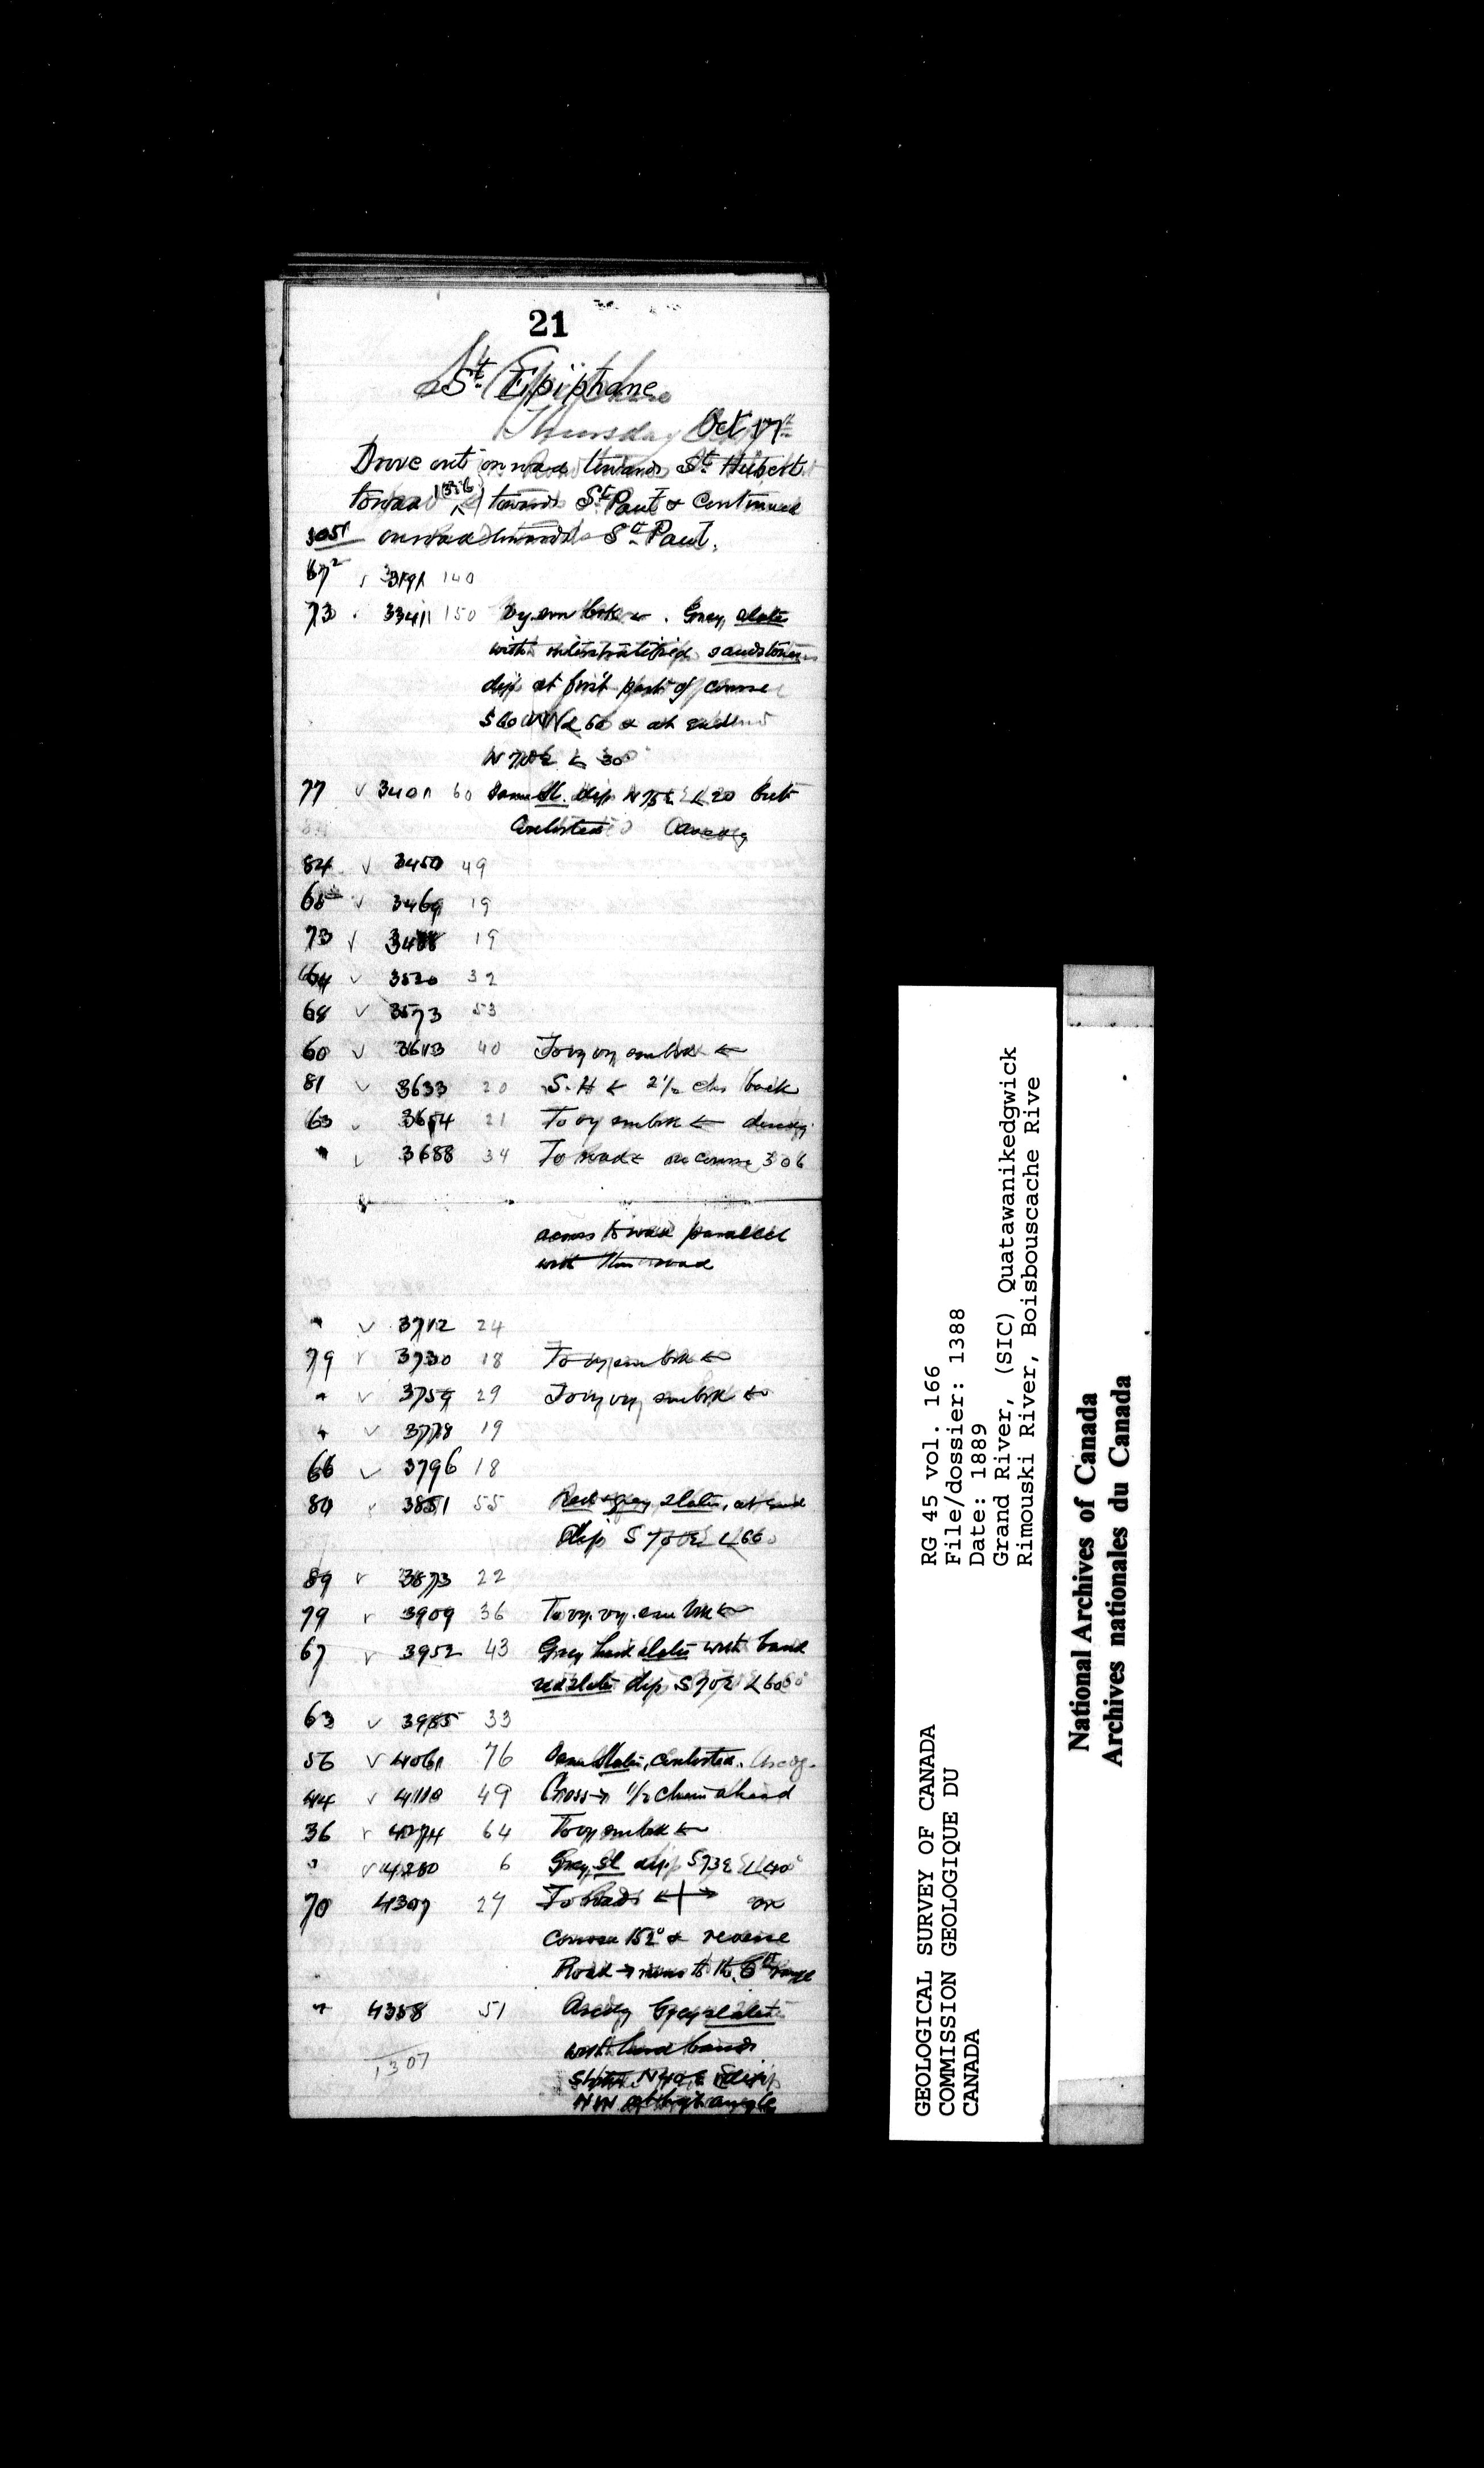 21
St. Epiphane
Thursday Oct 17th
Drove out on road towards St. Hubert
to road (336) towards St. Paul & continued
3051 on road towards St. Paul.
67 3191 140
73 3341 150 by sm brk ←. Grey slates
with interstratified sandstones
dip at first part of course
S60W < 60 & at end
N70E < 30°
77 √ 3401 60 Same sl. dip N75E < 20 but
contorted
84 √ 3450 49
65 √ 3469 19
73 √ 3488 19
64 √ 3520 32
68 √ 3573 53
60 √ 3613 40 To vy vy sm brk ←
81 √ 3633 20 S.H ← 2½ chs back
63 √ 3654 21 To vy sm brk ← descdg
" √ 3688 34 To road ← on course 306
across to road parallel
with this road
" √ 3712 24
79 √ 3730 18 To vy sm brk ←
" √ 3759 29 To vy vy sm brk ←
" √ 3778 19
66 √ 3796 18
80 √ 3851 55 Red & grey slates, at end
dip S70E < 60
89 √ 3873 22
79 √ 3909 36 To vy. vy. sm brk ←
67 √ 3952 43 Grey hard slates with band
red slates dip S70E < 60°
63 √ 3985 33
56 √ 4061 76 Same slates, contorted. Ascdg.
44 √ 4110 49 Cross → ½ chain ahead
36 √ 4274 64 To vy sm brk ←
" √ 4280 6 Grey sl dip S73E < 40°
70 4307 27 To Roads ←|→ on
course 152° & reverse
Road → runs to the 6th range
" 4358 51 Ascdg Grey slates
with hard bands
Strike N40E & dip
NW at high angle
1307
GEOLOGICAL SURVEY OF CANADA
COMMISSION GEOLOGIQUE DU
CANADA
RG 45 vol. 166
File/dossier: 1388
Date: 1889
Grand River, (SIC) Quatawanikedgwick
Rimouski River, Boisbouscache Rive
National Archives of Canada
Archives nationales du Canada